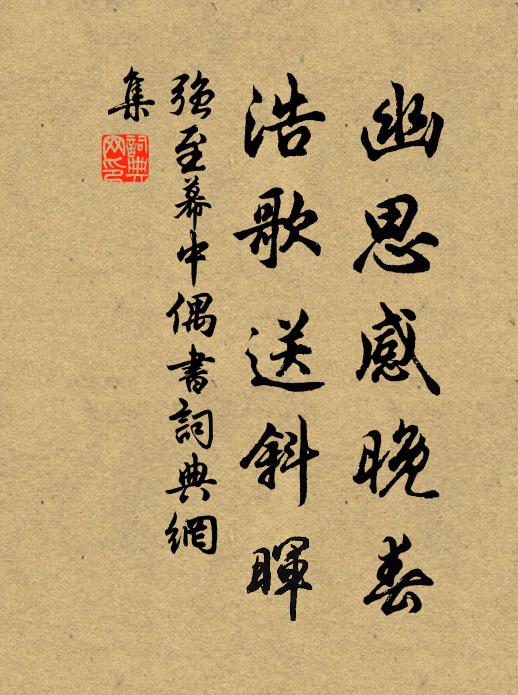 幽思感晚春
浩歌送斜暉
強至幕中偶書詞典網
集
詞典
网印